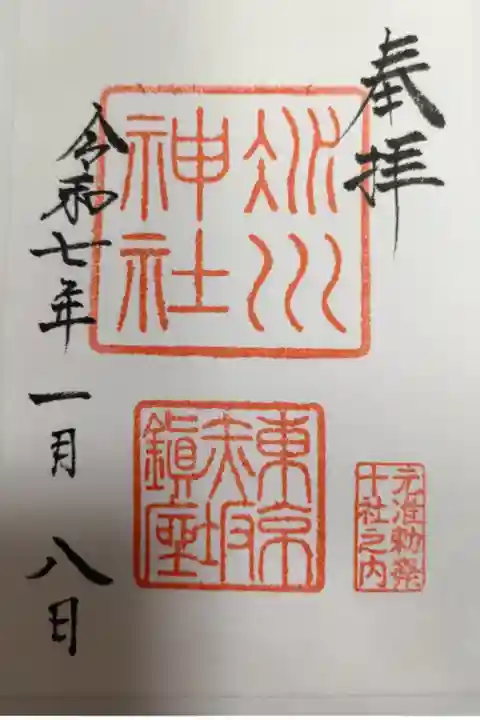 奉拝
氷川
神社
東京
赤坂
鎮座
元准勅祭
十社之内
令和七年一月八日